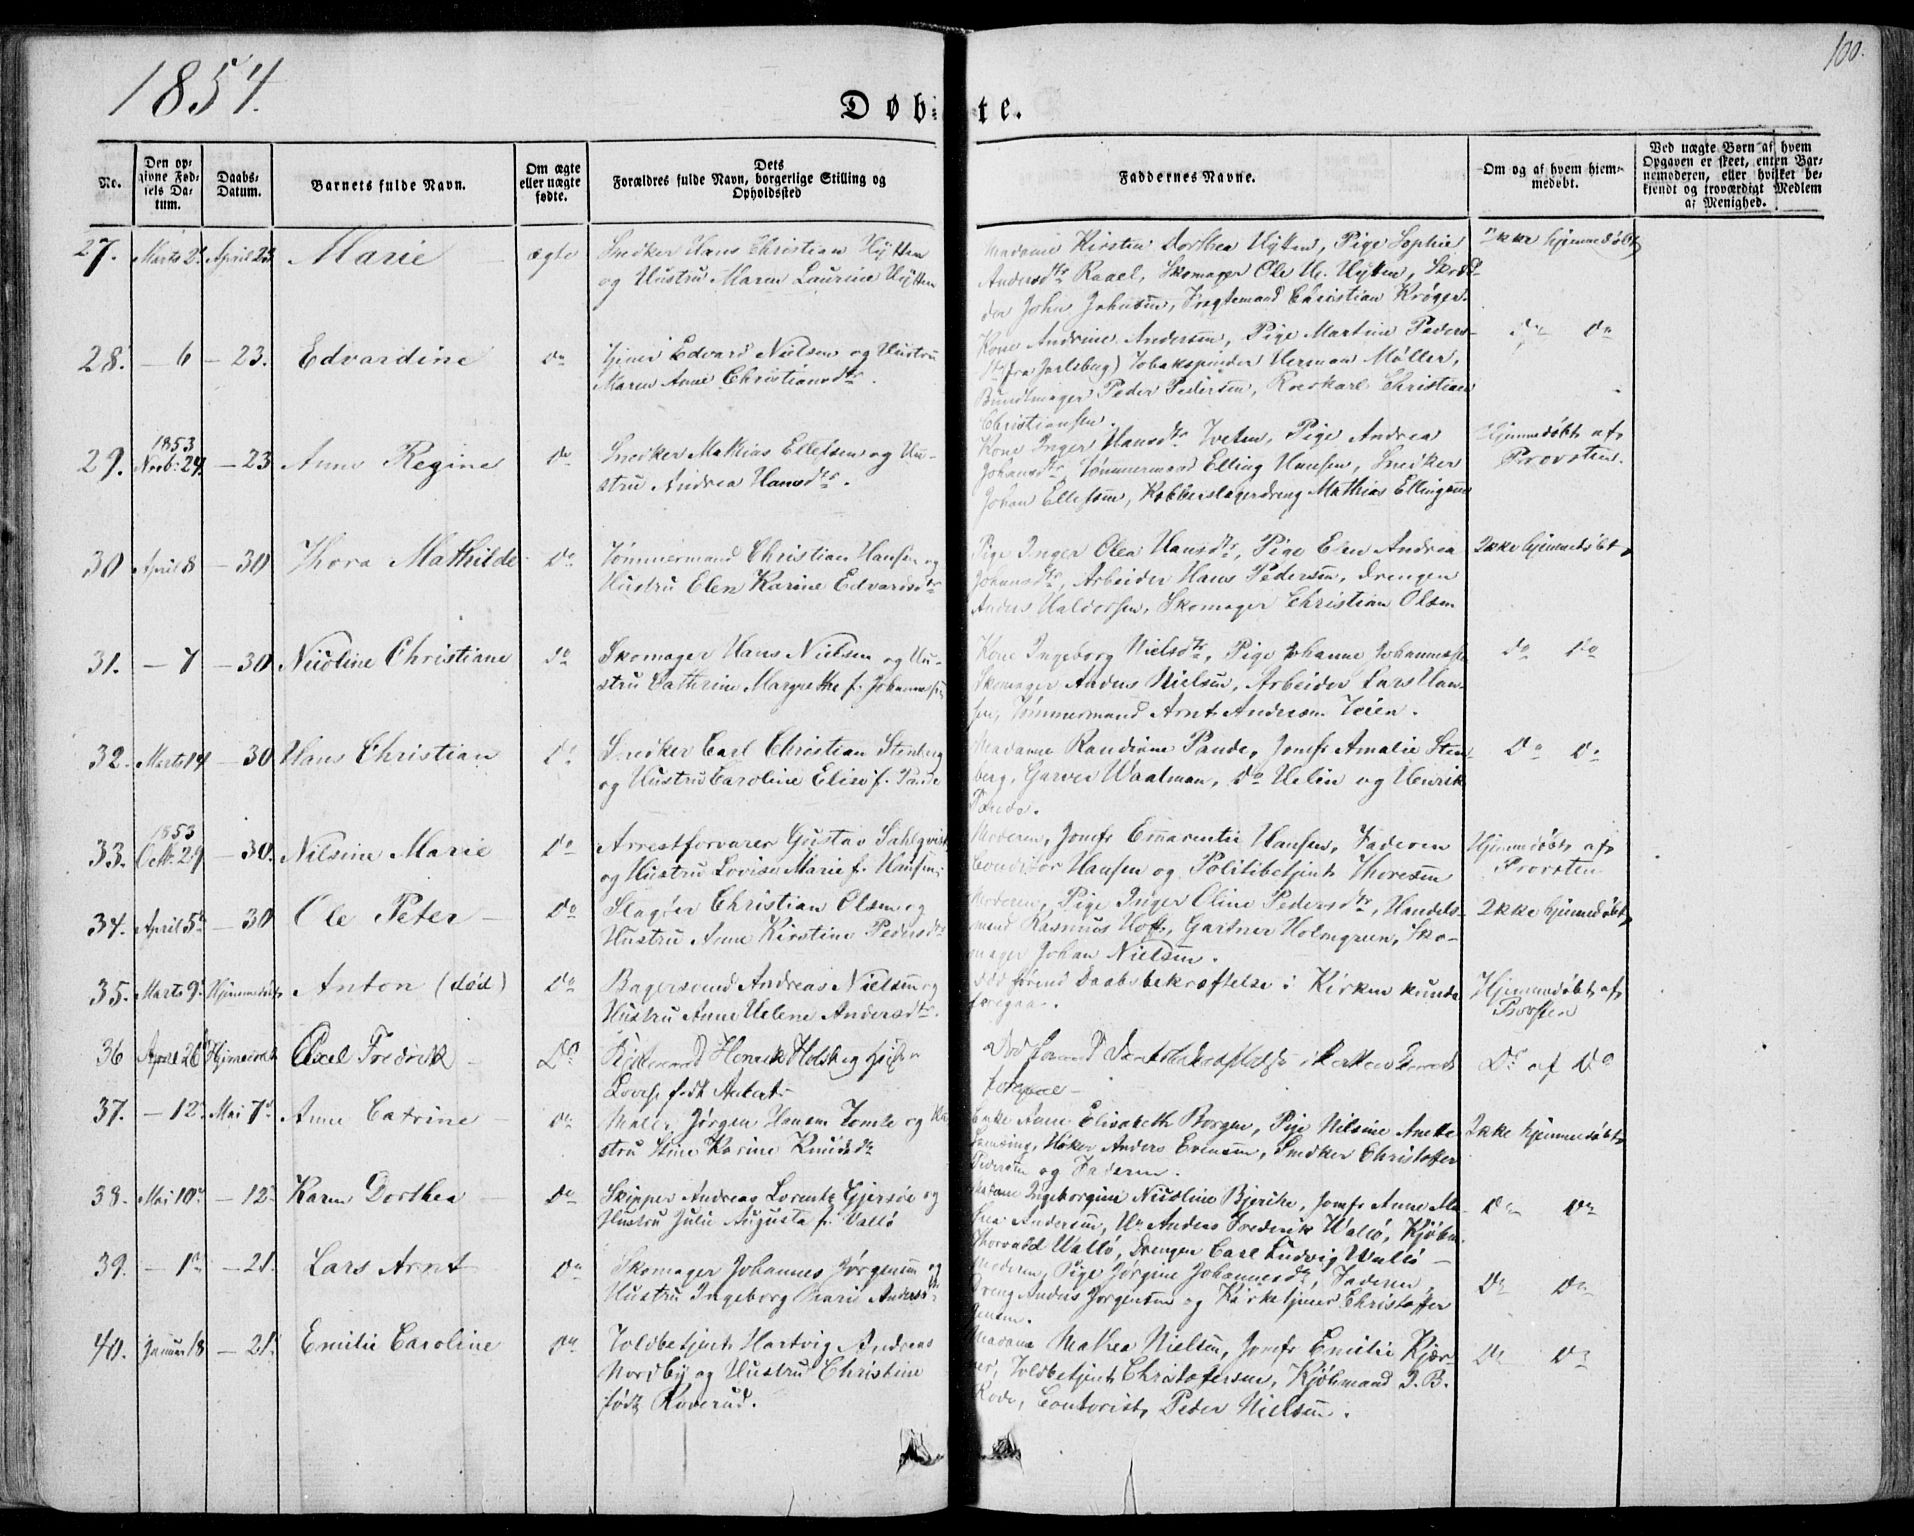 1854.
100.
Døb=te.
No.
Den op-
givne Fød-
sels Da-
tum.
Daabs-
Datum.
Barnets fulde Navn.
Om ægte
eller uægte
fødte.
Dets
Forældres fulde Navn, borgerlige Stilling og
Opholdssted
Faddernes Navne.
Om og af hvem hjem-
medøbt.
Ved uægte Børn af hvem
Opgaven er skeet, enten Bar-
nemoderen, eller hvilket be-
kjendt og troværdigt Medlem
af Menighed.
27. Marts 2. April 23. Marie ægte Snedker Hans Christian Hÿtten
og Hustru Maren Laurine Hÿtten
Madame Kirsten Dorthea Hÿtten, Pige Sophie
Andersdtr Raael, Skomager Ole H. Hÿtten, Skræd-
der John Johnsen, Fragtemand Christian Krøger.
Ikke hjemmedøbt
28. – 6 – 23. Edvardine do Tjener Edvard Nielsen og Hustru
Maren Anne Christiansdtr.
Kone Andrine Andersen, Pige Martine Peders-
dtr (fra Jarlsberg) Tobakspinder Herman Møller,
Bundtmager Peder Pedersen, Roerskarl Christian
Christiansen.
do do
29. 1853 Novb: 24. – 23 Anne Regine do Snedker Mathias Ellefsen og Hu-
stru Andrea Hansdtr.
Kone Inger Hansdtr Tveten, Pige Andrea
Johansdtr, Tømmermand Elling Hansen, Snedker
Johan Ellefsen, Kobberslagerdreng Mathias Ellingsen
Hjemmedøbt af
Provsten.
30 April 8 – 30 Thora Mathilde Do Tømmermand Christian Hansen og
Hustru Elen Karine Edvardsdtr
Pige Inger Olea Hansdtr, Pige Elen Andrea
Johansdtr, Arbeider Hans Pedersen, Drengen
Anders Haldorsen, Skomager Christian Olsen
Ikke hjemmedøbt
31. – 7 – 30 Nicoline Christiane do Skomager Hans Nielsen og Hu-
stru Cathrine Margrethe f. Johannessen
Kone Ingeborg Nielsdtr, Pige Johanne Johannesdtr
Skomager Anders Nielsen, Arbeider Lars Han-
sen, Tømmermand Arnt Andersen Teien.
do do
32. Marts 14 – 30 Hans Christian Do Snedker Carl Christian Stenberg
og Hustru Caroline Elise f. Pande
Madame Randiane Pande, Jomfr Amalie Sten-
berg, Garver Waalman, Do Helin og Henrik
Pande.
Do Do
33. 1853 Octb. 29 – 30. Nilsine Marie Do Arrestforvarer Gustav Sahlqvist
og Hustru Lovise Marie f. Hansen.
Moderen, Jomfr Emarentie Hansen, Faderen
Conditor Hansen og Politibetjent Thoresen
Hjemmedøbt af
Provsten
34. April 5. – 30 Ole Peter Do Slagter Christian Olsen og
Hustru Anne Kirstine Pedersdtr
Moderen, Pige Inger Oline Pedersdtr, Handels-
mand Rasmus Hoff, Gartner Holmgreen, Sko-
mager Johan Nielsen.
Ikke hjemmedøbt
35. Marts 9. Hjemmedøbt Anton (død) Do Bagersvend Andreas Nielsen og
Hustru Anne Helene Andersdtr.
død førend Daabsbekræftelse i Kirken kunde
foregaa.
Hjemmedøbt af
Provsten
36 April 26 Hjemmedøbt Axel Fredrik Do Henrik Holst og Hustru
Lovise født Aubert
Død førend Daabsbekræftelse i Kirken kunde
foregaae –
Do af Do
37. – 12. Mai 7. Anne Catrine do Maler Jørgen Hansen Tomte og Hu-
stru Stine Karine Knudsdtr
Enke Anne Elisabeth Borgen, Pige Nilsine Anette
Høker Anders Evensen, Snedker Christoffer
Pedersen og Faderen.
Ikke hjemmedøbt
38. Mai 10. – 12. Karen Dorthea Do Skipper Andreas Lorentz Gjersøe og
Hustru Julie Augusta f. Vallø
Madame Ingeborgine Nicoline Bjerke, Jomfr Anne Ma-
thea Andersen, Hr Anders Frederik Wallø, Kjøbm.
Thorvald Wallø, Drengen Carl Ludvig Wallø –
Do Do
39. – 1. – 21. Lars Arnt Do Skomager Johannes Jørgensen og
Hustru Ingeborg Marie Andersdtr
Moderen, Pige Jørgine Johannesdtr, Faderen,
Dreng Anders Jørgensen og Kirketjener Christoffer
Jensen.
Do Do
40. Januar 18 – 21. Emilie Caroline Do Toldbetjent Hartvig Andreas
Nordby og Hustru Christine
født Røverud.
Madame Mathea Nielsen, Jomfr Emilie Kjær-
ner, Toldbetjent Christofersen, Kjøbmand I. B.
Rode, Contorist Peder Nielsen.
Do Do